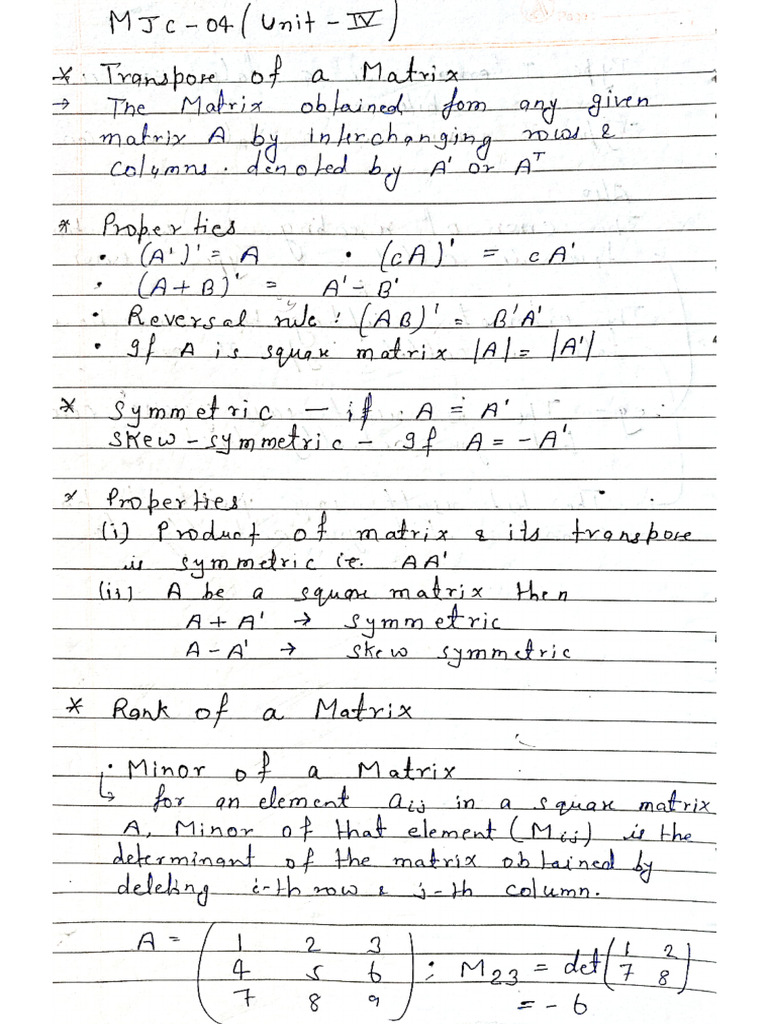 MJC-04 (Unit - IV)
* Transpose of a Matrix
→ The Matrix obtained fom any given
matrix A by interchanging rows &
columns. denoted by A' or A^T
* Properties
• (A')' = A • (cA)' = cA'
• (A+B)' = A' - B'
• Reversal rule: (AB)' = B'A'
• If A is square matrix |A| = |A'|
* Symmetric — if A = A'
Skew-symmetric - If A = -A'
* Properties.
(i) Product of matrix & its transpose
is symmetric ie. AA'
(ii) A be a square matrix then
A + A' → Symmetric
A - A' → Skew symmetric
* Rank of a Matrix
• Minor of a Matrix
↳ for an element aij in a square matrix
A, Minor of that element (Mij) is the
determinant of the matrix obtained by
deleting i-th row & j-th column.
A = ( 1 2 3
4 5 6
7 8 9 ) ; M23 = det ( 1 2
7 8 )
= - 6